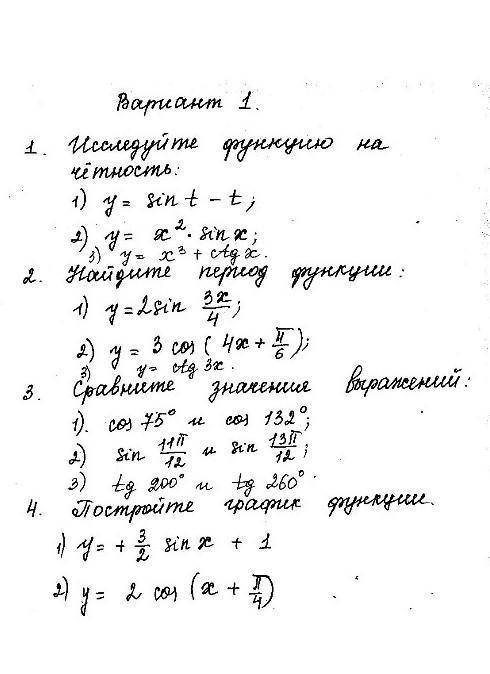 Вариант 1.
1. Исследуйте функцию на
чётность:
1) y = sin t - t;
2) y = x²·sin x;
3) y = x³ + ctg x.
2. Найдите период функции:
1) y = 2 sin 3x/4;
2) y = 3 cos(4x + π/6);
3) y = ctg 3x.
3. Сравните значения выражений:
1). cos 75° и cos 132°;
2) sin 11π/12 и sin 13π/12;
3) tg 200° и tg 260°
4. Постройте график функции.
1) y = + 3/2 sin x + 1
2) y = 2 cos (x + π/4)